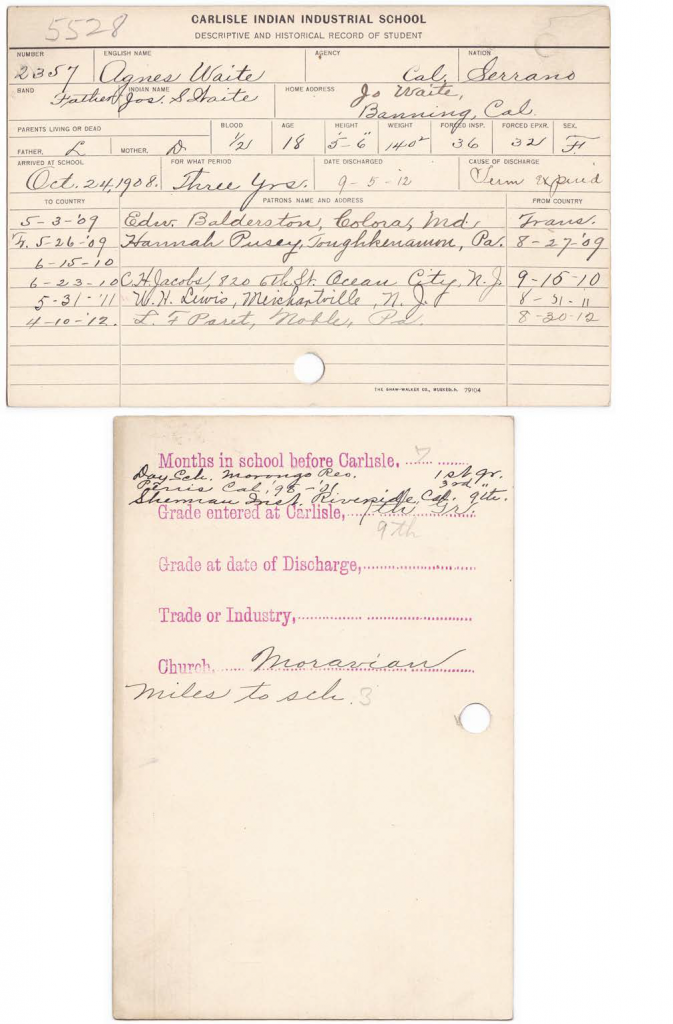 5528
CARLISLE INDIAN INDUSTRIAL SCHOOL
DESCRIPTIVE AND HISTORICAL RECORD OF STUDENT
NUMBER ENGLISH NAME AGENCY NATION
2357 Agnes Waite Cal. Serrano
BAND INDIAN NAME HOME ADDRESS
Father Jos. S. Waite Jo Waite,
Banning, Cal.
PARENTS LIVING OR DEAD BLOOD AGE HEIGHT WEIGHT FORCED INSP. FORCED EXPR. SEX
FATHER, L MOTHER, D. 1/2 18 5'-6" 140 36 32 F.
ARRIVED AT SCHOOL FOR WHAT PERIOD DATE DISCHARGED CAUSE OF DISCHARGE
Oct. 24, 1908. Three Yrs. 9-5-12 Term expired
TO COUNTRY PATRONS NAME AND ADDRESS FROM COUNTRY
5-3-'09 Edw. Balderston, Colora, Md. Trans.
5-26-'09 Hannah Pusey, Toughkenamon, Pa. 8-27-'09
6-15-10
6-23-10 C. H. Jacobs, 820 6th St. Ocean City, N. J. 9-15-10
5-31-'11 W. H. Lewis, Merchartville, N. J. 8-31-11
4-10-'12. L. F. Paret, Noble, Pa. 8-30-12
THE SHAW-WALKER CO., MUSKEGON. 79104
Months in school before Carlisle, 7
Day Sch. Morongo Res. 1st gr.
Perris Cal. 3rd "
Sherman Inst. Riverside, Cal. 9th.
Grade entered at Carlisle, 9th Gr.
9th
Grade at date of Discharge,
Trade or Industry,
Church, Moravian
Miles to sch. 3